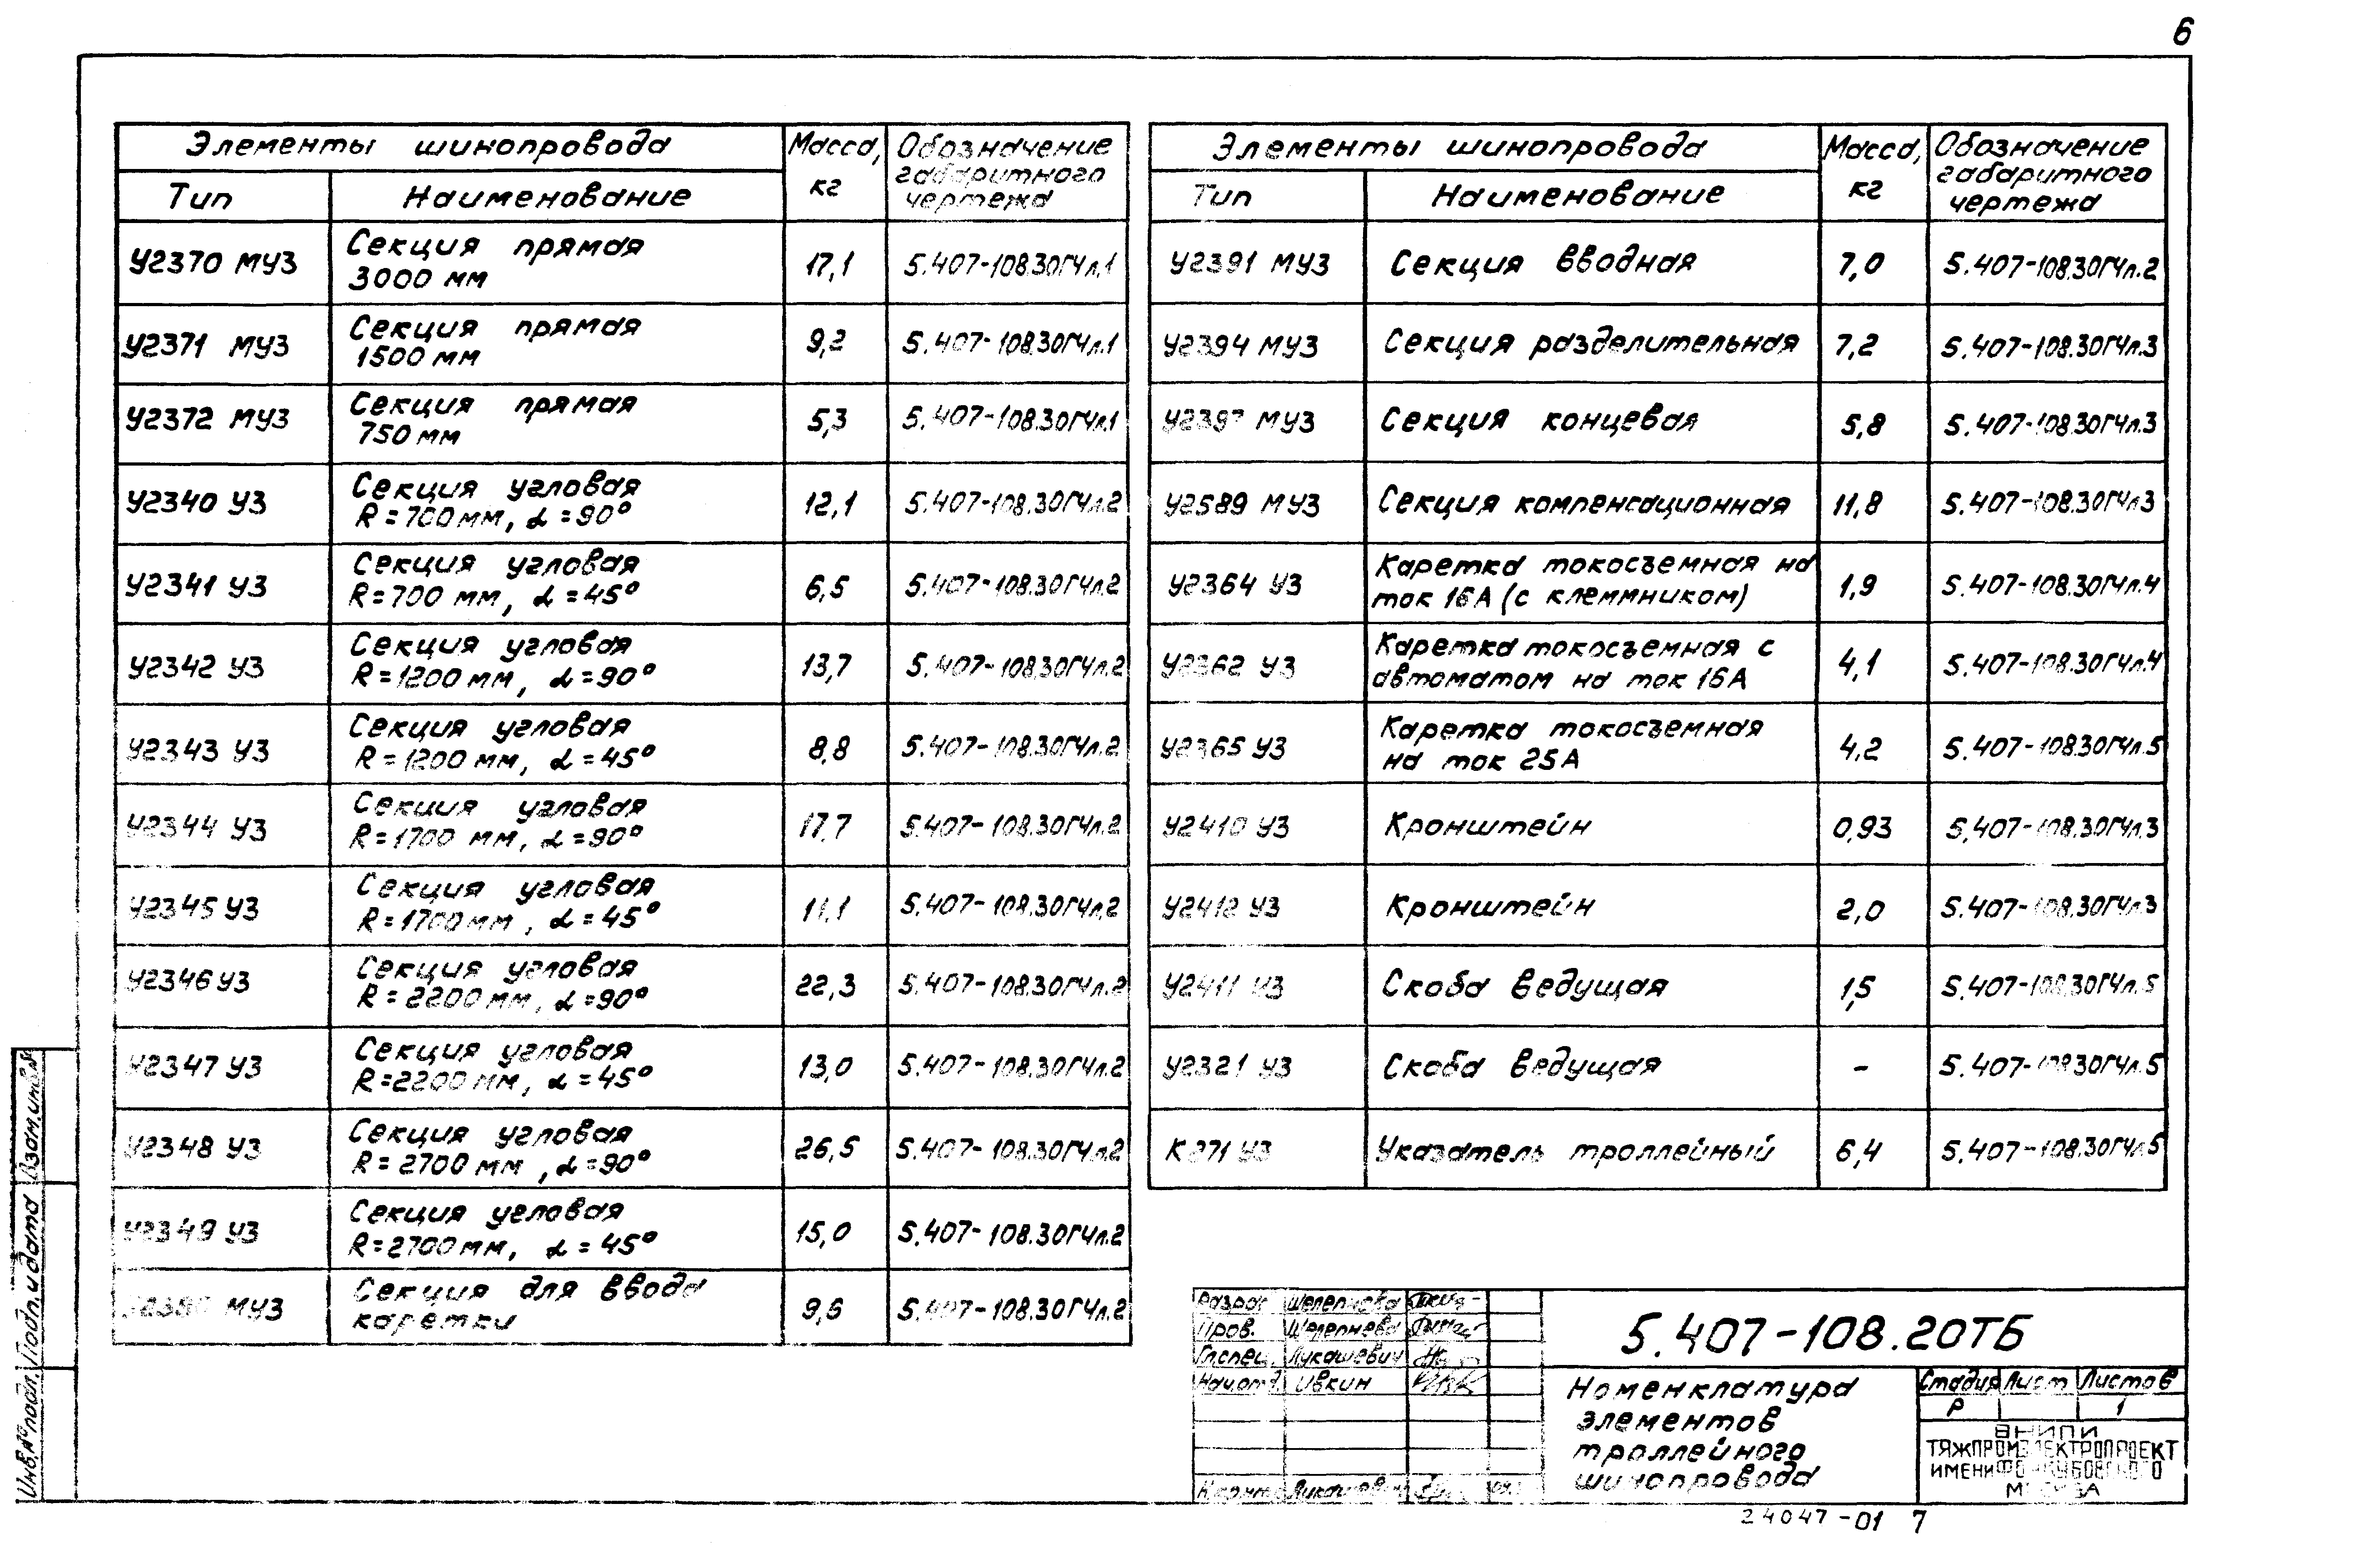 6
Элементы шинопровода
Масса, кг
Обозначение габаритного чертежа
Тип
Наименование
У2370 МУ3 Секция прямая 3000 мм 17,1 5.407-108.30ГЧл.1
У2371 МУ3 Секция прямая 1500 мм 9,2 5.407-108.30ГЧл.1
У2372 МУ3 Секция прямая 750 мм 5,3 5.407-108.30ГЧл.1
У2340 У3 Секция угловая R=700 мм, α=90° 12,1 5.407-108.30ГЧл.2
У2341 У3 Секция угловая R=700 мм, α=45° 6,5 5.407-108.30ГЧл.2
У2342 У3 Секция угловая R=1200 мм, α=90° 13,7 5.407-108.30ГЧл.2
У2343 У3 Секция угловая R=1200 мм, α=45° 8,8 5.407-108.30ГЧл.2
У2344 У3 Секция угловая R=1700 мм, α=90° 17,7 5.407-108.30ГЧл.2
У2345 У3 Секция угловая R=1700 мм, α=45° 11,1 5.407-108.30ГЧл.2
У2346 У3 Секция угловая R=2200 мм, α=90° 22,3 5.407-108.30ГЧл.2
У2347 У3 Секция угловая R=2200 мм, α=45° 13,0 5.407-108.30ГЧл.2
У2348 У3 Секция угловая R=2700 мм, α=90° 26,5 5.407-108.30ГЧл.2
У2349 У3 Секция угловая R=2700 мм, α=45° 15,0 5.407-108.30ГЧл.2
МУ3 Секция для ввода каретки 9,6 5.407-108.30ГЧл.2
Элементы шинопровода
Масса, кг
Обозначение габаритного чертежа
Тип
Наименование
У2391 МУ3 Секция вводная 7,0 5.407-108.30ГЧл.2
У2394 МУ3 Секция разделительная 7,2 5.407-108.30ГЧл.3
У2397 МУ3 Секция концевая 5,8 5.407-108.30ГЧл.3
У2589 МУ3 Секция компенсационная 11,8 5.407-108.30ГЧл.3
У2364 У3 Каретка токосъемная на ток 16А (с клеммником) 1,9 5.407-108.30ГЧл.4
У2362 У3 Каретка токосъемная с автоматом на ток 16А 4,1 5.407-108.30ГЧл.4
У2365 У3 Каретка токосъемная на ток 25А 4,2 5.407-108.30ГЧл.5
У2410 У3 Кронштейн 0,93 5.407-108.30ГЧл.3
У2412 У3 Кронштейн 2,0 5.407-108.30ГЧл.3
У2411 У3 Скоба ведущая 1,5 5.407-108.30ГЧл.5
У2321 У3 Скоба ведущая - 5.407-108.30ГЧл.5
К271 У3 Указатель троллейный 6,4 5.407-108.30ГЧл.5
Взам.инв.№
Подп. и дата
Инв.№ подл.
Разраб. Шелепнева
Пров. Шелепнева
Гл.спец. Лукашевич
Нач.отд. Ивкин
Н.контр. Лукашевич
5.407-108.20ТБ
Номенклатура
элементов
троллейного
шинопровода
Стадия Лист Листов
Р 1
ВНИПИ
ТЯЖПРОМЭЛЕКТРОПРОЕКТ
ИМЕНИ Ф.Б.ЯКУБОВСКОГО
МОСКВА
24047-01 7